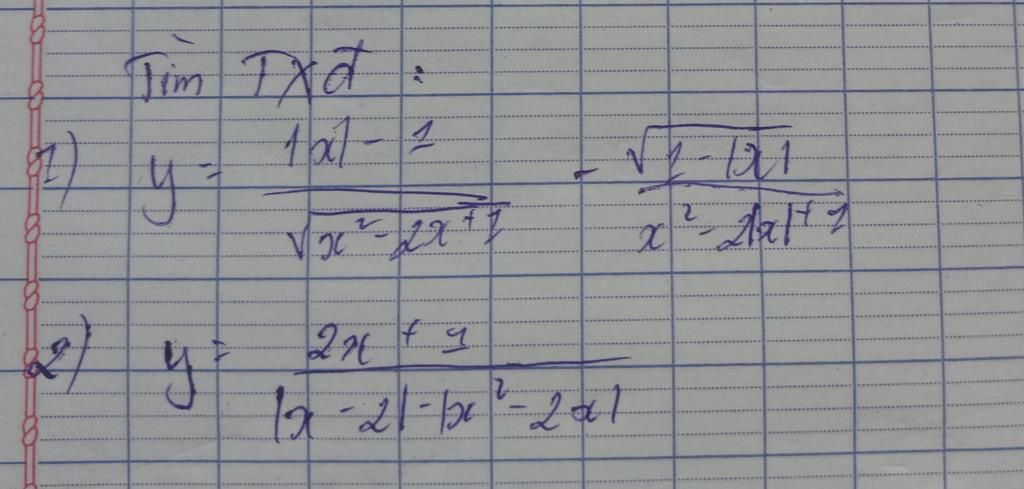 Tìm TXđ :
1) y = \frac{|x| - 1}{\sqrt{x^2 - 2x + 1}} - \frac{\sqrt{1 - |x|}}{x^2 - 2|x| + 1}
2) y = \frac{2x + 1}{|x - 2| - |x^2 - 2x|}